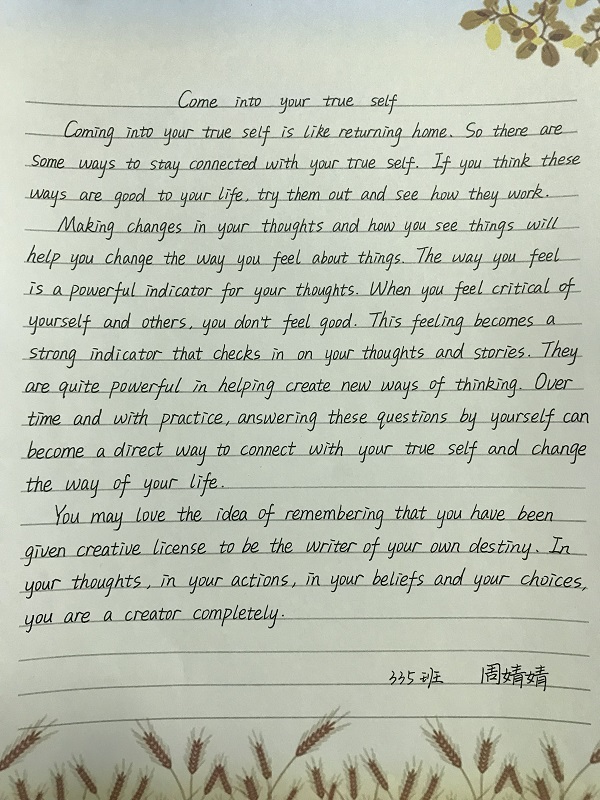 Come into your true self
Coming into your true self is like returning home. So there are
some ways to stay connected with your true self. If you think these
ways are good to your life, try them out and see how they work.
Making changes in your thoughts and how you see things will
help you change the way you feel about things. The way you feel
is a powerful indicator for your thoughts. When you feel critical of
yourself and others, you don't feel good. This feeling becomes a
strong indicator that checks in on your thoughts and stories. They
are quite powerful in helping create new ways of thinking. Over
time and with practice, answering these questions by yourself can
become a direct way to connect with your true self and change
the way of your life.
You may love the idea of remembering that you have been
given creative license to be the writer of your own destiny. In
your thoughts, in your actions, in your beliefs and your choices,
you are a creator completely.
335班 周婧婧